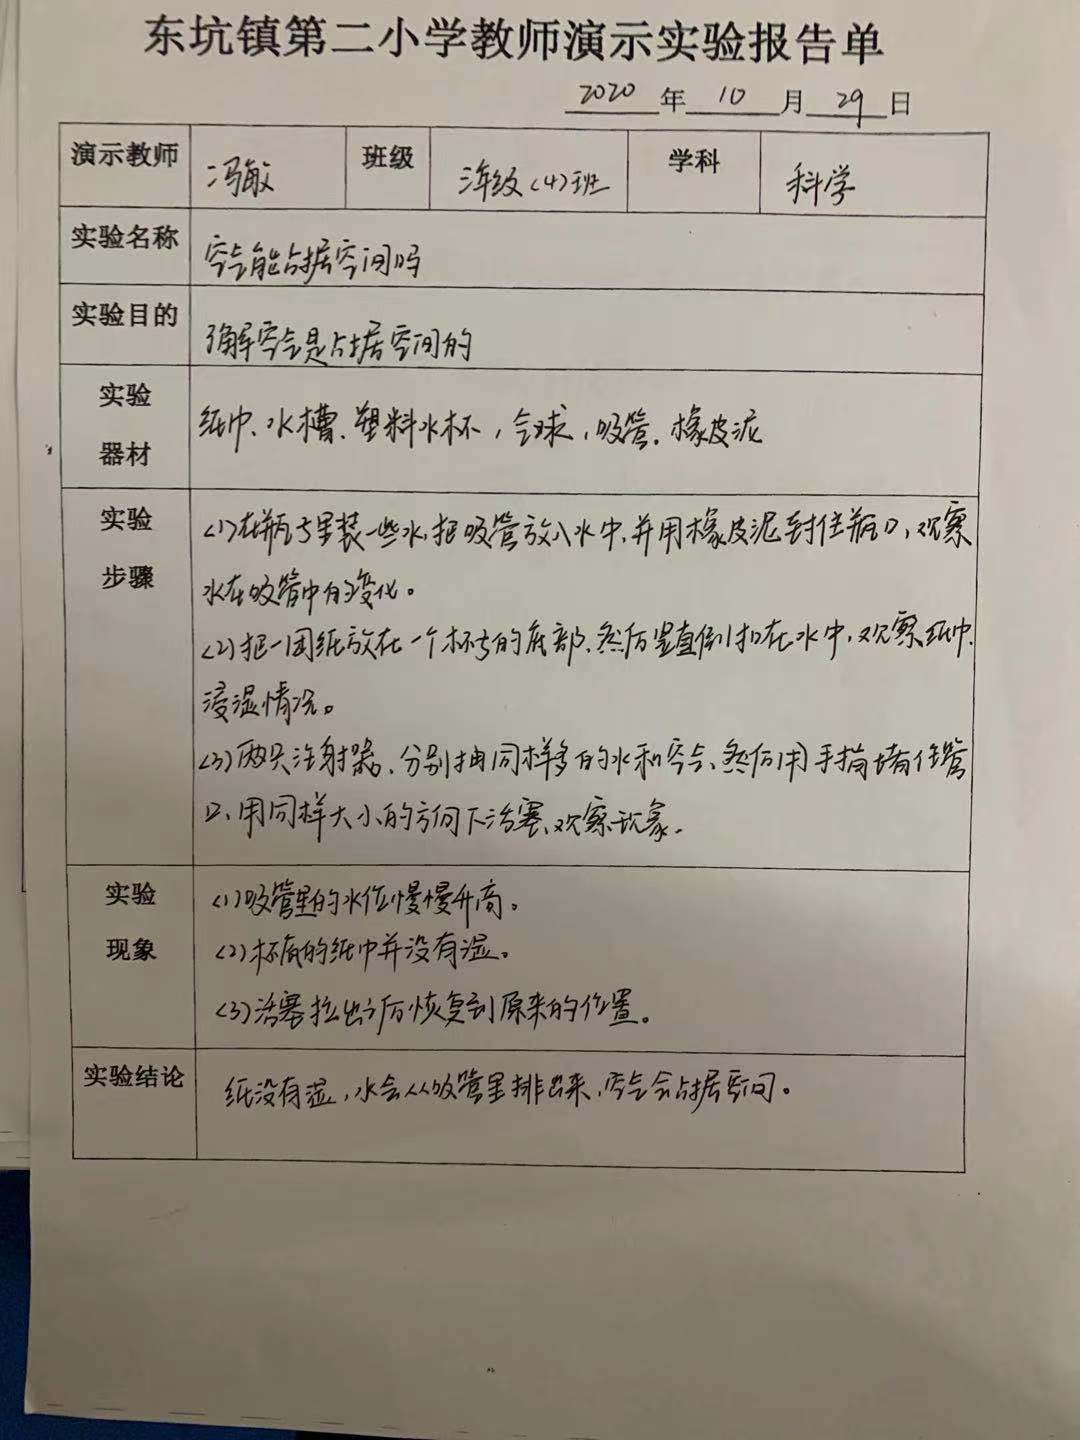 东坑镇第二小学教师演示实验报告单
2020 年 10 月 29 日
演示教师 冯敏 班级 三年级(4)班 学科 科学
实验名称 空气能占据空间吗
实验目的 了解空气是占据空间的
实验器材 纸巾、水槽、塑料水杯,气球,吸管、橡皮泥
实验步骤 (1)在瓶子里装一些水,把吸管放入水中,并用橡皮泥封住瓶口,观察
水在吸管中的变化。
(2)把一团纸放在一个杯子的底部、然后竖直倒扣在水中,观察纸巾
浸湿情况。
(3)两只注射器、分别抽同样多的水和空气、然后用手指堵住管
口、用同样大小的方向下活塞、观察现象.
实验现象 (1)吸管里的水位慢慢升高。
(2)杯底的纸巾并没有湿。
(3)活塞拉出之后恢复到原来的位置。
实验结论 纸没有湿,水会从吸管里排出来,空气会占据空间。